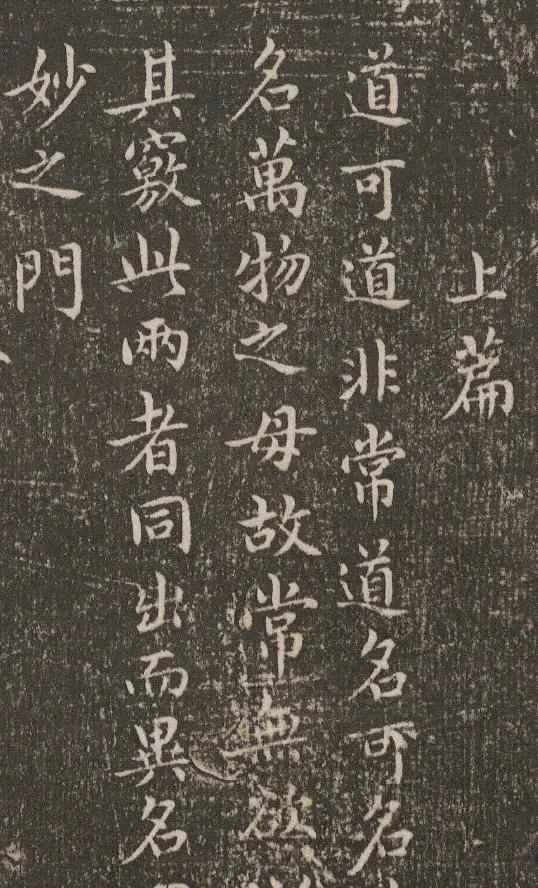 上篇
道可道非常道名可名
名萬物之母故常無欲
其竅此兩者同出而異名
妙之門